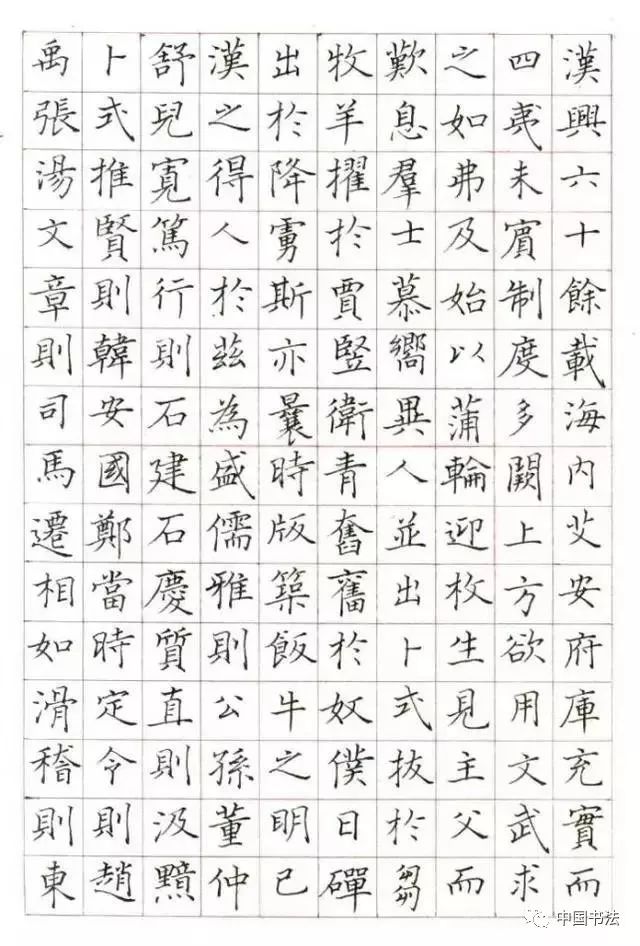 漢興六十餘載海內艾安府庫充實而
四夷未賓制度多闕上方欲用文武求
之如弗及始以蒲輪迎枚生見主父而
歎息羣士慕嚮異人並出卜式拔於芻
牧羊擢於賈豎衛青舊奮於奴僕日磾
出於降虜斯亦曩時版築飯牛之明已
漢之得人於茲為盛儒雅則公孫董仲
舒兒寬篤行則石建石慶質直則汲黯
卜式推賢則韓安國鄭當時定令則趙
禹張湯文章則司馬遷相如滑稽則東
中国书法